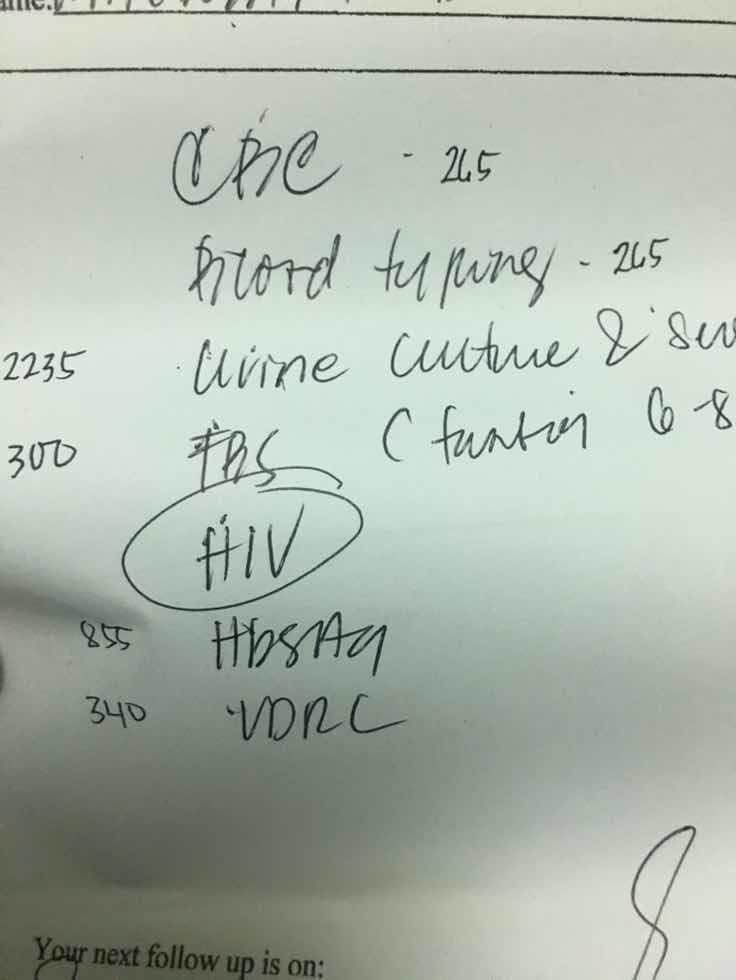 ame:
CBC - 265
Blood typing - 265
2235 Urine culture & sen
300 FBS ( fasting 6-8
HIV
855 HbsAg
340 VDRL
Your next follow up is on: